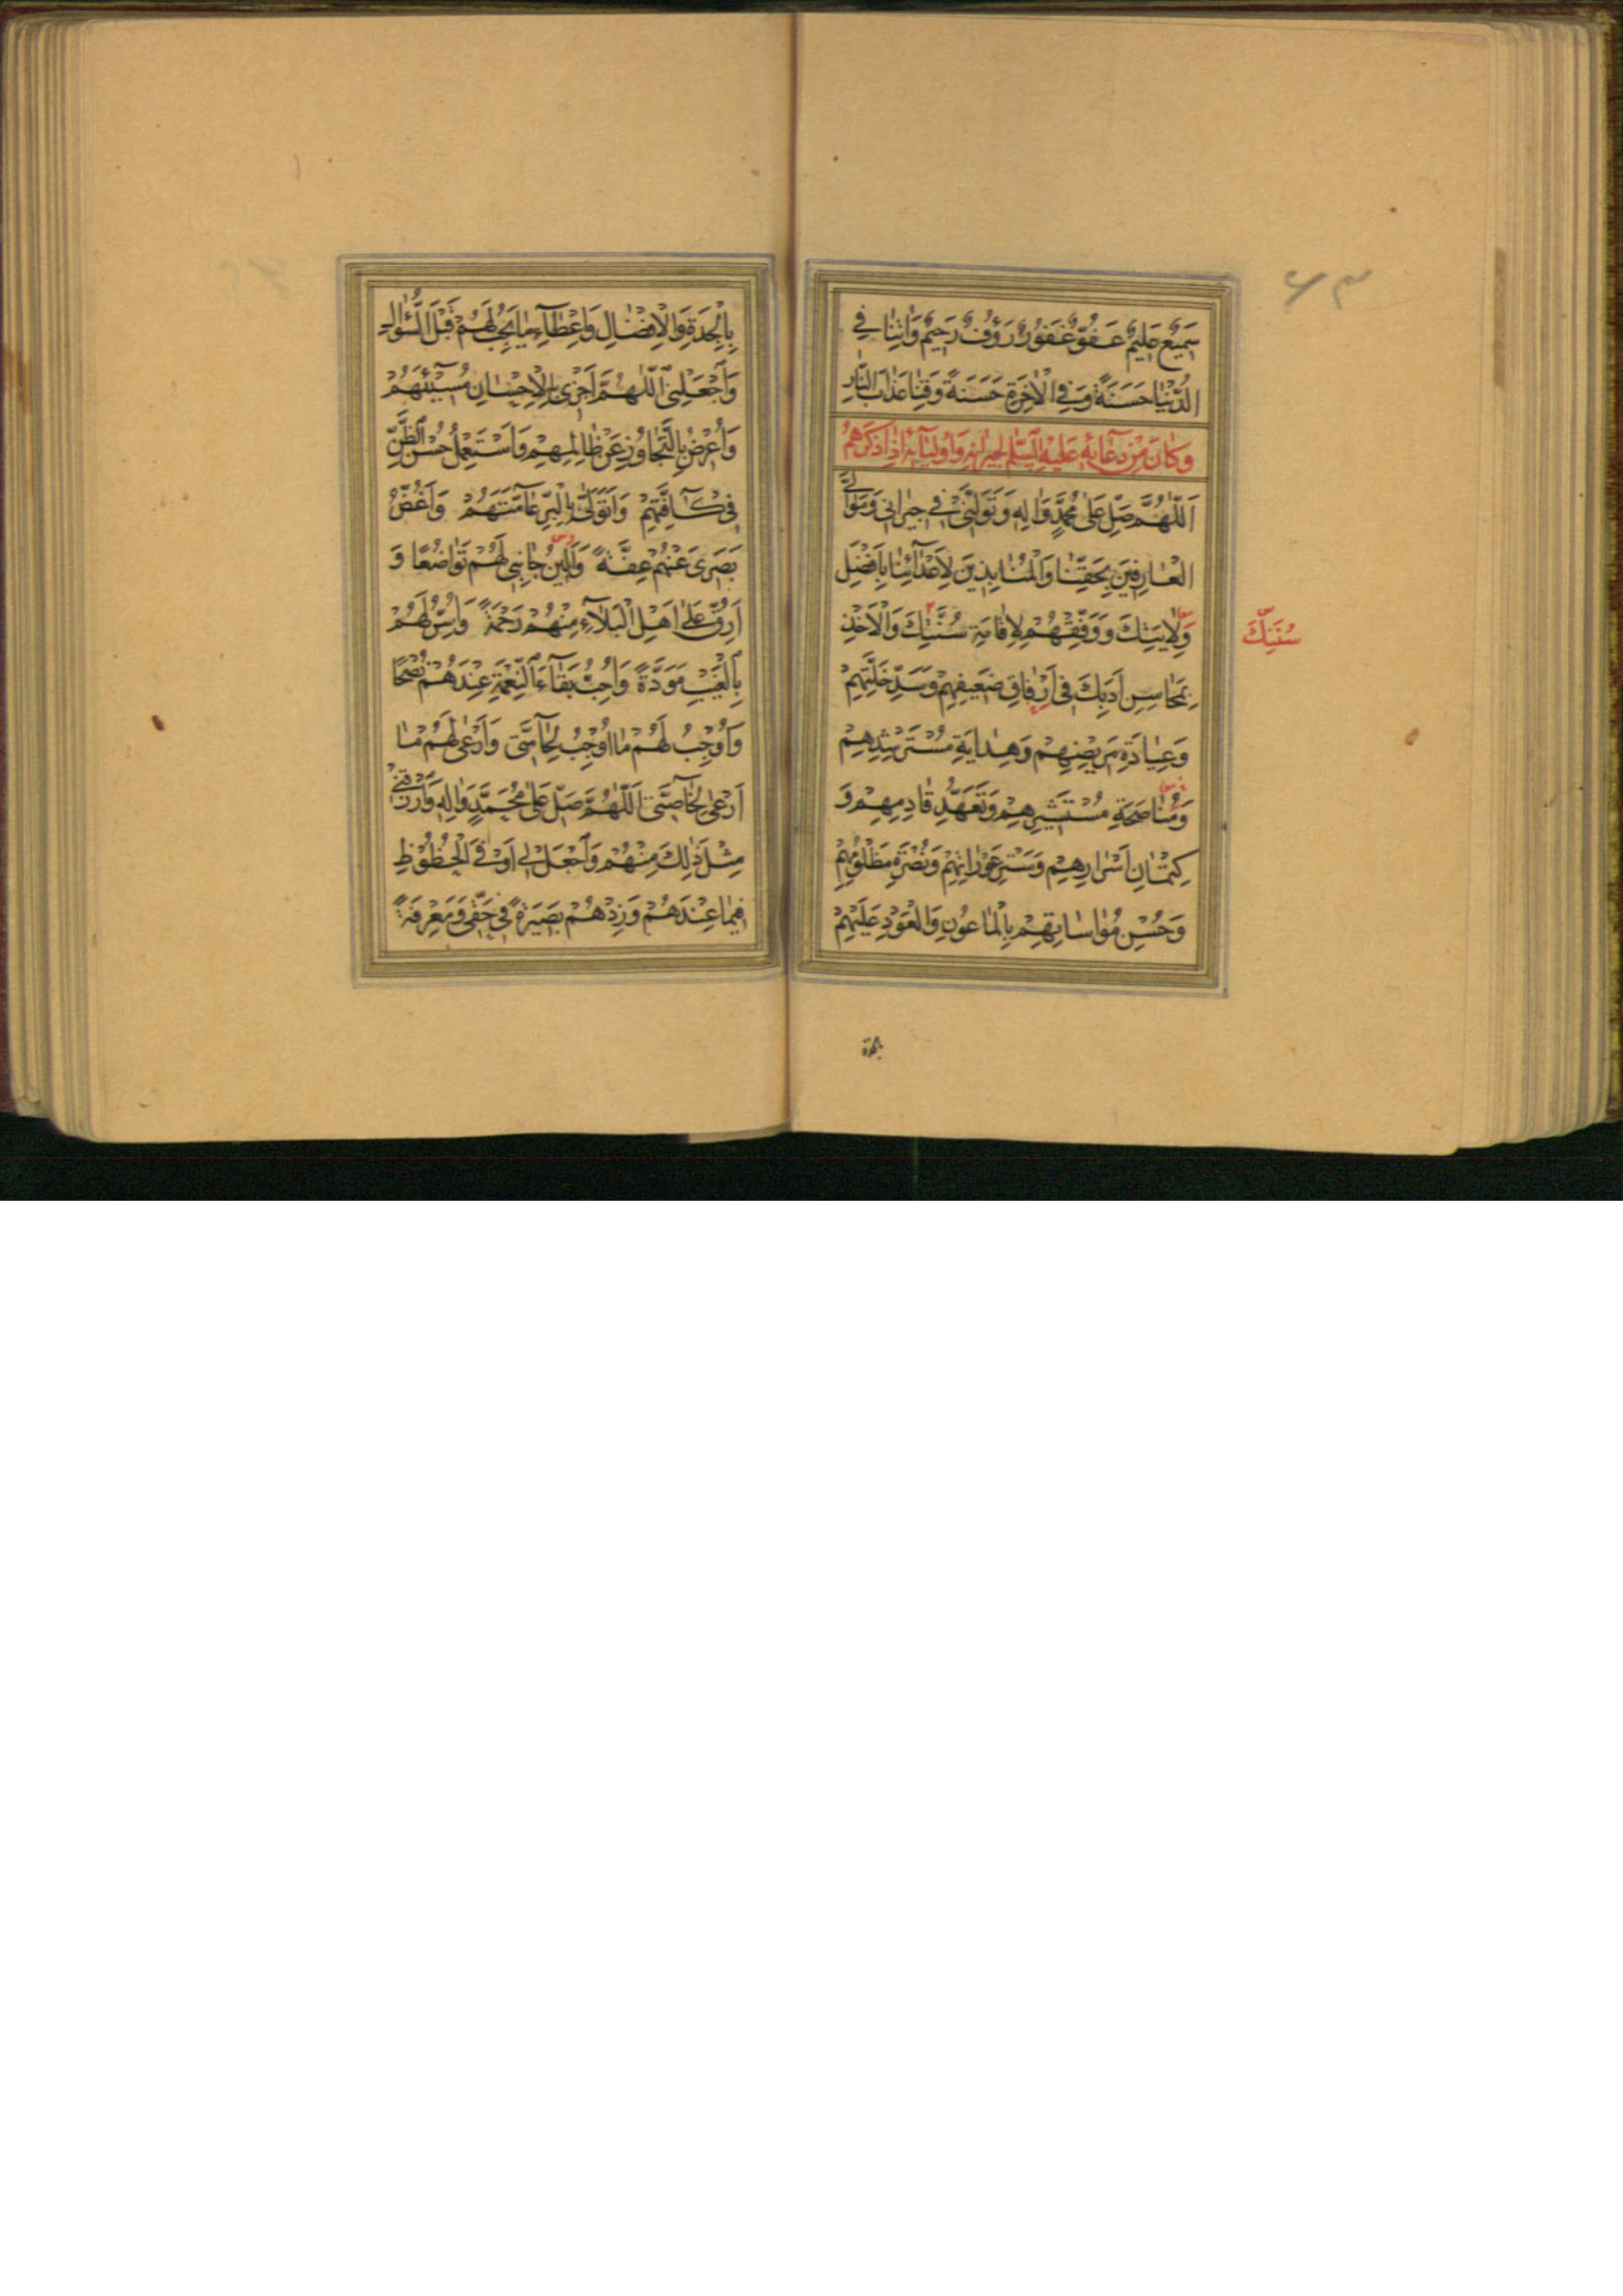 سَمِيعٌ عَلِيمٌ عَفُوٌّ غَفُورٌ رَؤُفٌ رَحِيمٌ وَاٰتِنٰا فِي
الدُّنْيٰا حَسَنَةً وَفِي الْاٰخِرَةِ حَسَنَةً وَقِنٰا عَذٰابَ النّٰارِ
وَكٰانَ مِنْ دُعٰآئِهِ عَلَيْهِ السَّلٰمُ لِجِيرٰانِهِ وَاَوْلِيٰآئِهِ اِذٰا ذَكَرَهُمْ
اَللّٰهُمَّ صَلِّ عَلٰى مُحَمَّدٍ وَاٰلِهِ وَتَوَلَّنِي فِي جِيرٰانِي وَمَوٰالِيَّ
الْعٰارِفِينَ بِحَقِّنٰا وَالْمُنٰابِذِينَ لِاَعْدٰآئِنٰا بِاَفْضَلِ
وَلٰايَتِكَ وَوَفِّقْهُمْ لِاِقٰامَةِ سُنَّتِكَ وَالْاَخْذِ
سُنَنِكَ
بِمَحٰاسِنِ اَدَبِكَ فِي اِرْفٰاقِ ضَعِيفِهِمْ وَسَدِّ خَلَّتِهِمْ
وَعِيٰادَةِ مَرِيضِهِمْ وَهِدٰايَةِ مُسْتَرْشِدِهِمْ
وَمُنٰاصَحَةِ مُسْتَشِيرِهِمْ وَتَعَهُّدِ قٰادِمِهِمْ وَ
كِتْمٰانِ اَسْرٰارِهِمْ وَسَتْرِ عَوْرٰاتِهِمْ وَنُصْرَةِ مَظْلُومِهِمْ
وَحُسْنِ مُوٰاسٰاتِهِمْ بِالْمٰاعُونِ وَالْعَوْدِ عَلَيْهِمْ
بالجدة
بِالْجِدَةِ وَالْاِفْضٰالِ وَاِعْطٰآءِ مٰا يَجِبُ لَهُمْ قَبْلَ السُّؤٰالِ
وَاجْعَلْنِي اللّٰهُمَّ اَجْزِي بِالْاِحْسٰانِ مُسِيْٓئَهُمْ
وَاُعْرِضُ بِالتَّجٰاوُزِ عَنْ ظٰالِمِهِمْ وَاَسْتَعْمِلُ حُسْنَ الظَّنِّ
فِي كٰٓافَّتِهِمْ وَاَتَوَلّٰى بِالْبِرِّ عٰٓامَّتَهُمْ وَاَغُضُّ
بَصَرِي عَنْهُمْ عِفَّةً وَاُلِينُ جٰانِبِي لَهُمْ تَوٰاضُعًا وَ
اَرِقُّ عَلٰى اَهْلِ الْبَلٰآءِ مِنْهُمْ رَحْمَةً وَاُسِرُّ لَهُمْ
بِالْغَيْبِ مَوَدَّةً وَاُحِبُّ بَقٰآءَ النِّعْمَةِ عِنْدَهُمْ نُصْحًا
وَاُوجِبُ لَهُمْ مٰا اُوجِبُ لِحٰآمَّتِي وَاَرْعٰى لَهُمْ مٰا
اَرْعٰى لِخٰآصَّتِي اَللّٰهُمَّ صَلِّ عَلٰى مُحَمَّدٍ وَاٰلِهِ وَارْزُقْنِي
مِثْلَ ذٰلِكَ مِنْهُمْ وَاجْعَلْ لِي اَوْفَى الْحُظُوظِ
فِيمٰا عِنْدَهُمْ وَزِدْهُمْ بَصِيرَةً فِي حَقِّي وَمَعْرِفَةً